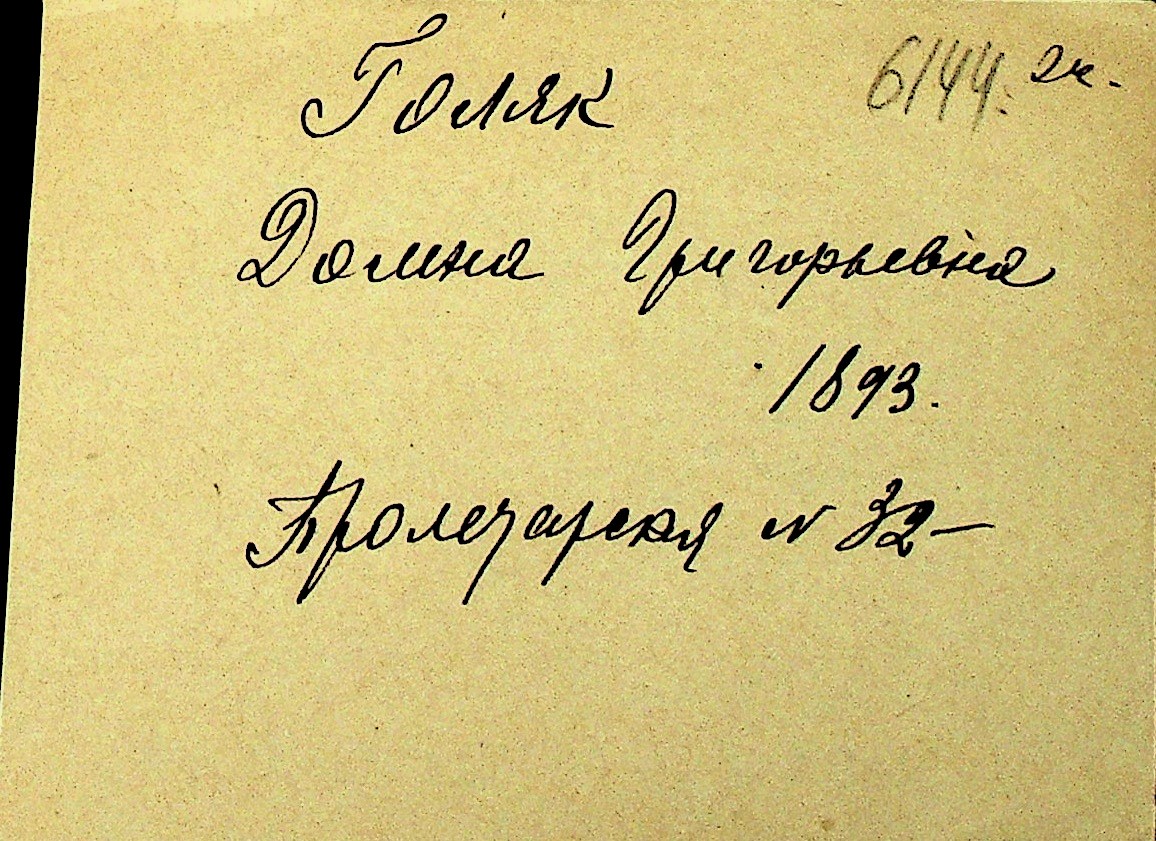 Голяк 6144. 2к.
Домна Григорьевна
1893.
Пролетарская N 32